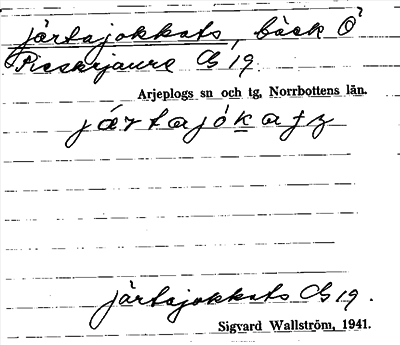 järtajokkats, bäck Ö
Pieskejaure CG 19.
Arjeplogs sn och tg, Norrbottens län.
jártajókatʒ
järtajokkats CG 19.
Sigvard Wallström, 1941.